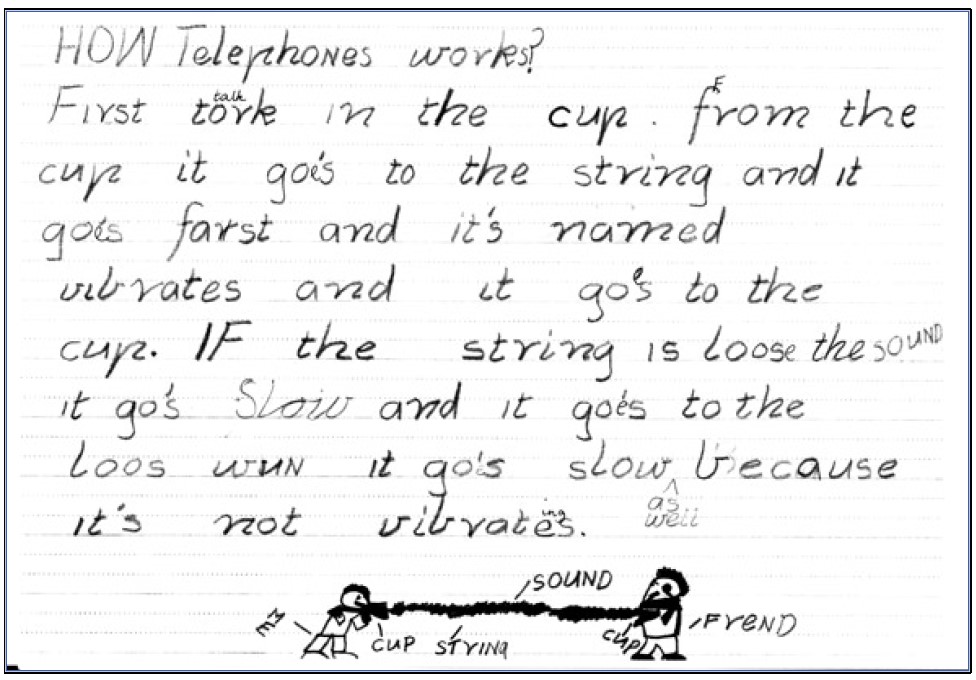 HOW Telephones works?
talk
First törk in the cup. from the
cup it goe's to the string and it
goes farst and it's named
vibrates and it go's to the
cup. IF the string is loose the SOUND
it go's Slow and it goe's to the
Loos wun it go's slow because
as
well
it's not vibrates.
ing
SOUND
ME
CUP STRING
CUP
FREND